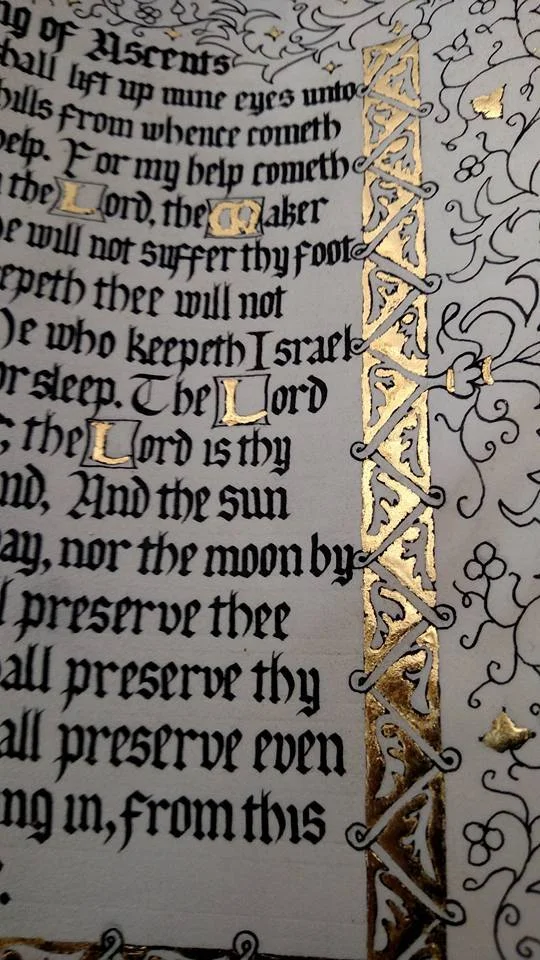 of Ascents
lift up mine eyes unto
hills from whence cometh
help. For my help cometh
the Lord, the Maker
will not suffer thy foot
thee will not
who keepeth Israel
sleep. The Lord
the Lord is thy
And the sun
nor the moon by
preserve thee
preserve thy
preserve even
in, from this